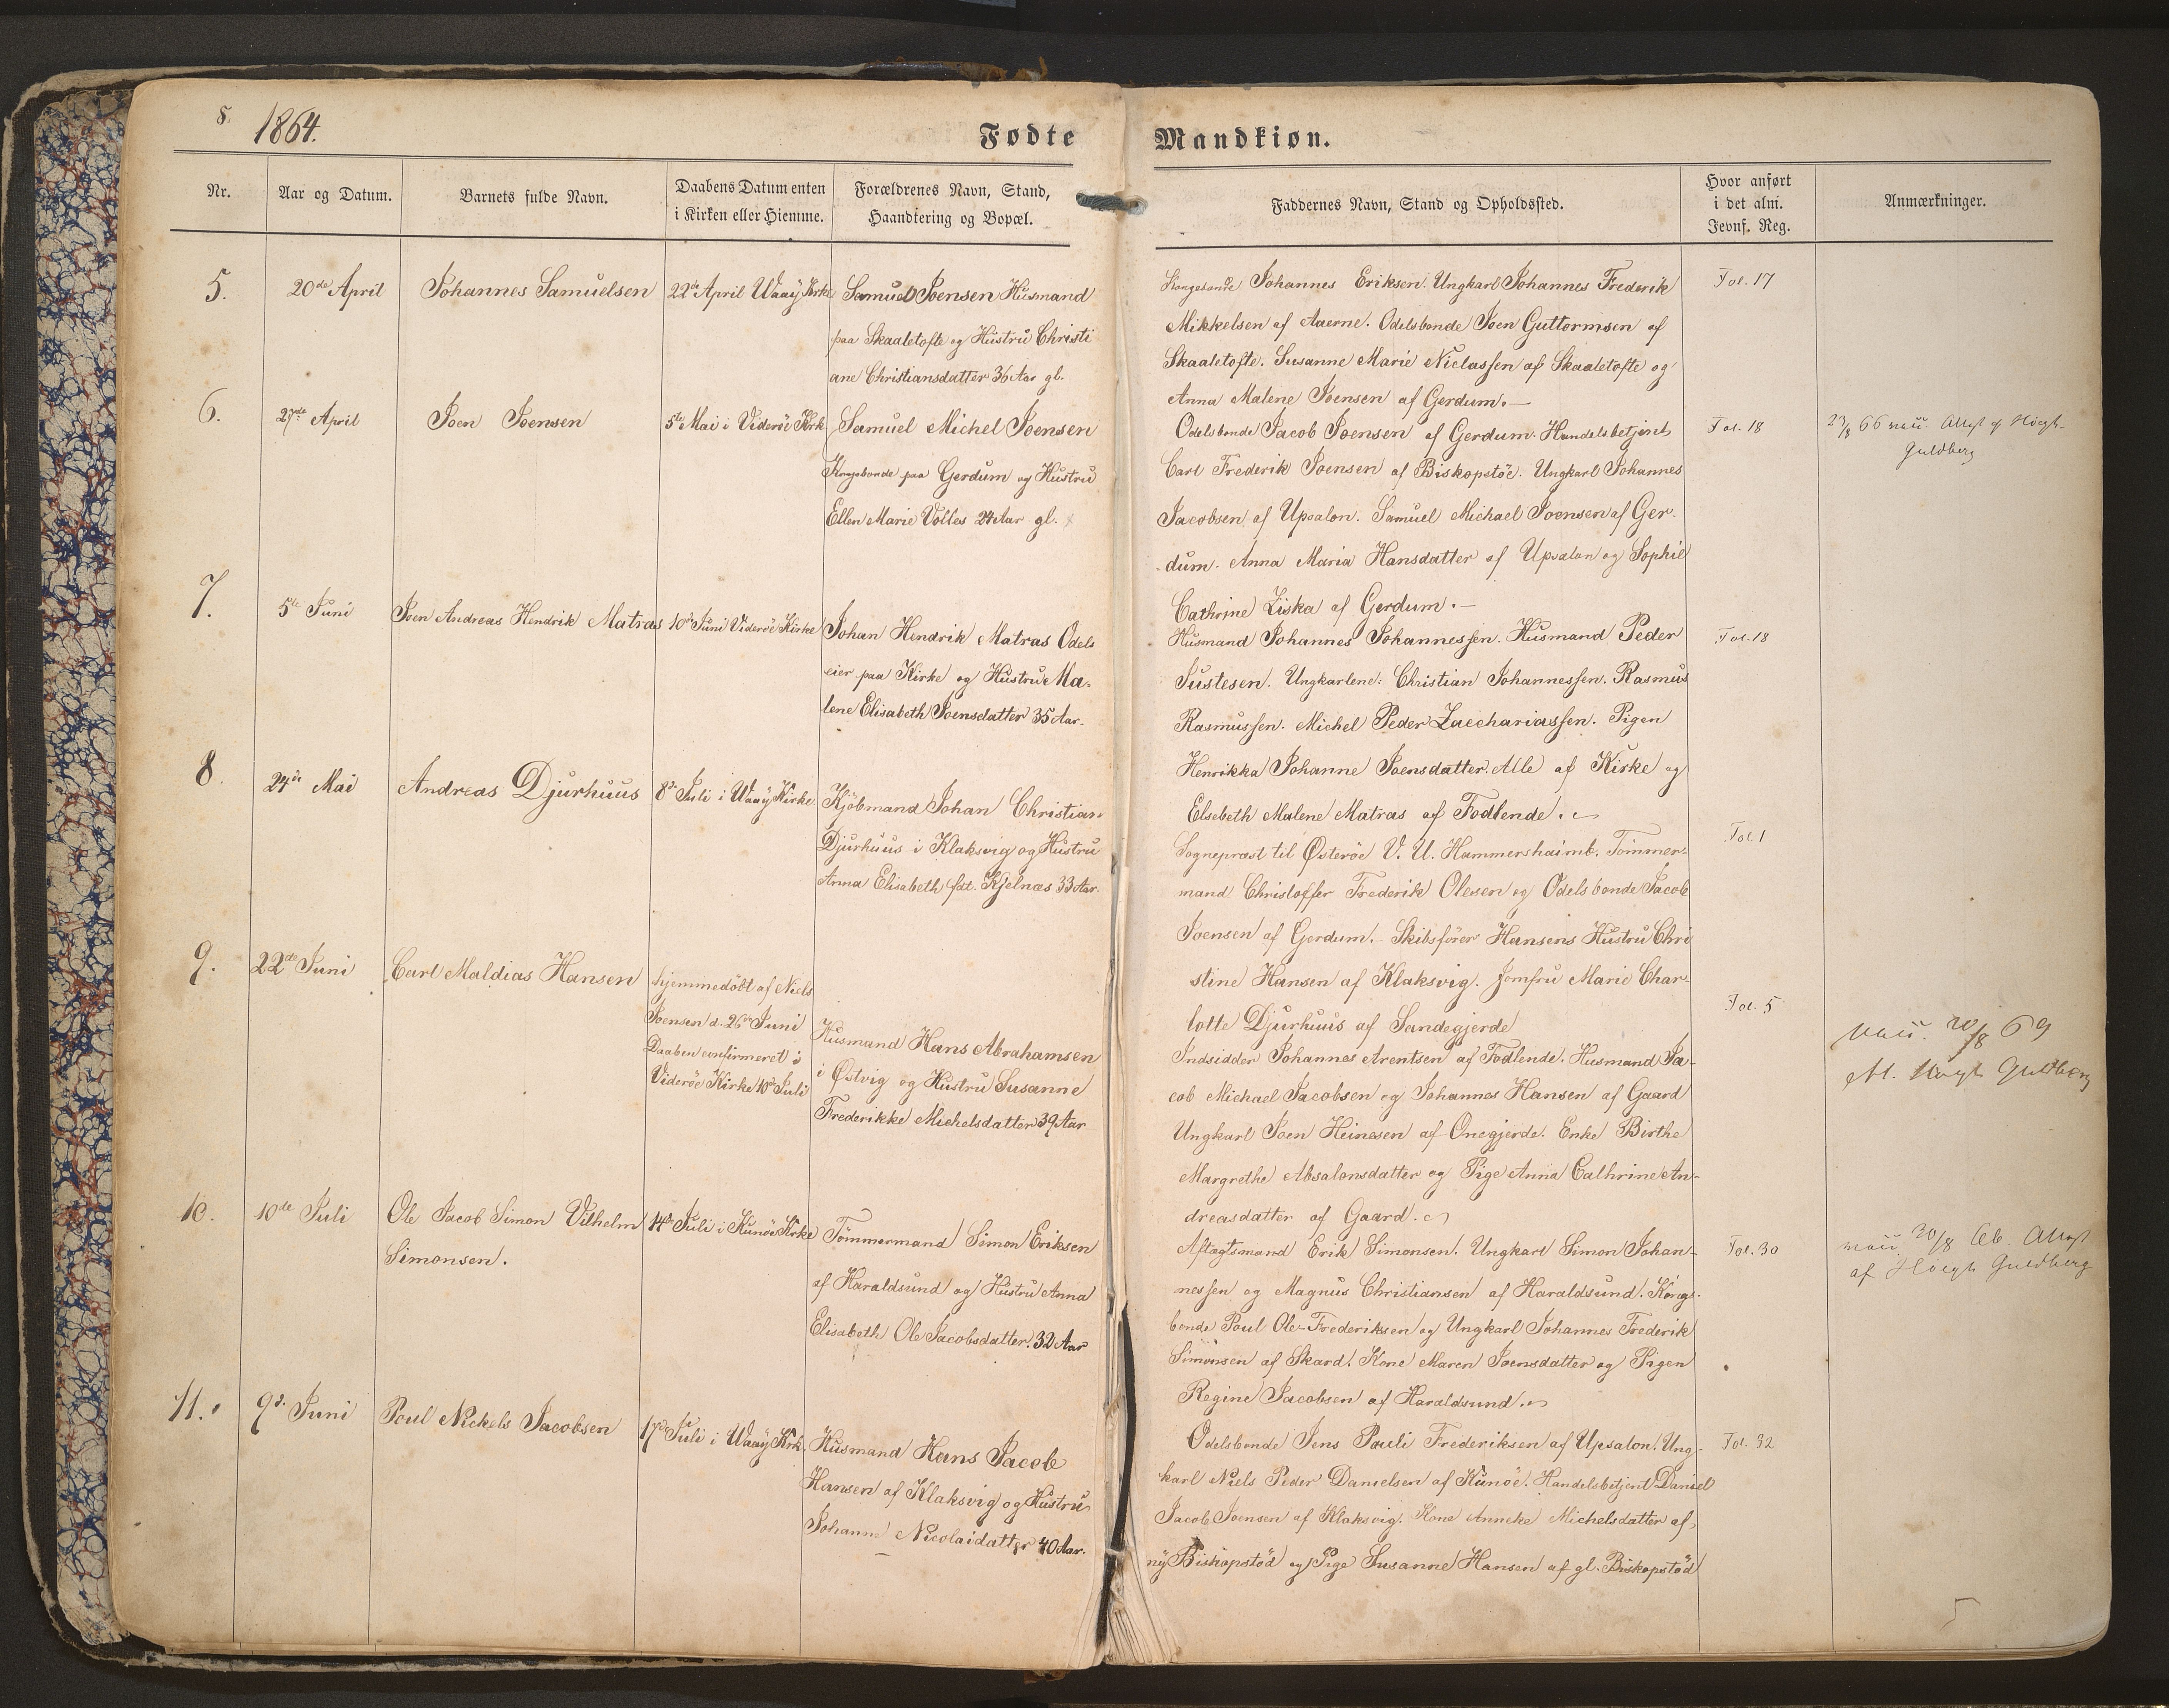 8.
1864.
Fødte Mandkiøn.
Nr.
Aar og Datum.
Barnets fulde Navn.
Daabens Datum enten
i Kirken eller Hiemme.
Forældrenes Navn, Stand,
Haandtering og Bopæl.
Faddernes Navn, Stand og Opholdssted.
Hvor anført
i det alm.
Jevnf. Reg.
Anmærkninger.
5.
20de April
Johannes Samuelsen
22de April Vaaÿ Kirke
Samuel Joensen Husmand
paa Skaaletofte og Hustru Christi
ane Christiansdatter 36 Aar gl.
Kongsbonde Johannes Eriksen. Ungkarl Johannes Frederik
Mikkelsen af Aaerne. Odelsbonde Joen Guttormsen af
Skaaletofte. Susanne Marie Niclassen af Skaaletofte og
Anna Malene Joensen af Gerdum.—
Fol. 17
6.
27de April
Joen Joensen
5te Mai i Viderøe Kirk
Samuel Michel Joensen
Kongsbonde paa Gerdum og Hustru
Ellen Marie Volles 24 Aar gl.
Odelsbonde Jacob Joensen af Gerdum. Handelsbetjent
Carl Frederik Joensen af Biskopstöe. Ungkarl Johannes
Jacobsen af Upsalon. Samuel Michael Joensen af Ger-
dum. Anna Maria Hansdatter af Upsalon og Sophie
Cathrine Ziska af Gerdum.—
Fol. 18
23/8 66 Attest af Höegh-
Guldberg
7.
5te Juni
Joen Andreas Hendrik Matras
10de Juni Viderøe Kirke
Johan Hendrik Matras Odels
eier paa Kirke og Hustrue Ma-
lene Elisabeth Joensdatter 35 Aar.
Husmand Johannes Johannessen. Husmand Peder
Justesen. Ungkarlene: Christian Johannessen. Rasmus
Rasmussen. Michel Peder Zacchariassen. Pigen
Henrikka Johanne Joensdatter. Alle af Kirke og
Elsebeth Malene Matras af Fodlende.
Fol. 18
8.
24de Mai
Andreas Djurhuus
8de Juli i Vaaÿ Kirke
Kjöbmand Johan Christian
Djurhuus i Klaksvig og Hustru
Anna Elisabeth fød. Kjelnæs 33 Aar.
Sognepræst til Østerøe V. U. Hammershaimb. Tömmer-
mand Christoffer Frederik Olesen og Odelsbonde Jacob
Joensen af Gerdum.- Skibsfører Hansens Hustru Chri
stine Hansen af Klaksvig. Jomfru Marie Char-
lotte Djurhuus af Sandegjerde
Fol. 1
9.
22de Juni
Carl Maldias Hansen
hjemmedöbt af Niels
Joensen d. 26de Juni
Daaben confirmeret i
Viderøe Kirke 10de Juli
Husmand Hans Abrahamsen
i Østvig og Hustru Susanne
Frederikke Michelsdatter 39 Aar
Indsidder Johannes Arentsen af Fodlende. Husmand Ja-
cob Michael Jacobsen og Johannes Hansen af Gaard
Ungkarl Joen Heinesen af Onegjerde. Enke Birthe
Margrethe Absalonsdatter og Pige Anna Cathrine An-
dreasdatter af Gaard.
Fol. 5
20/8 69
At. Höegh Guldberg
10.
10de Juli
Ole Jacob Simon Vilhelm
Simonsen.
14de Juli i Kunöe Kirke
Tömmermand Simon Eriksen
af Haraldsund og Hustru Anna
Elisabeth Ole Jacobsdatter. 32 Aar
Aftægtsmand Erik Simonsen. Ungkarl Simon Johan-
nessen og Magnus Christiansen af Haraldsund. Kongs-
bonde Poul Ole-Frederiksen og Ungkarl Johannes Frederik
Simonsen af Skard. Kone Maren Joensdatter og Pigen
Regine Jacobsen af Haraldsund.
Fol. 30
20/8 Attest
af Höegh Guldberg
11.
9de Juni
Poul Nickels Jacobsen
17de Juli i Vaaÿ Kirk.
Husmand Hans Jacob
Hansen af Klaksvig og Hustru
Johanne Nicolaidatter 40 Aar.
Odelsbonde Jens Pauli Frederiksen af Upsalon. Ung-
karl Niels Peder Danielsen af Kunöe. Handelsbetjent Daniel
Jacob Joensen af Klaksvig. Kone Anneke Michelsdatter af
nÿ Biskopstöd og Pige Susanne Hansen af gl. Biskopstöd
Fol. 32
5